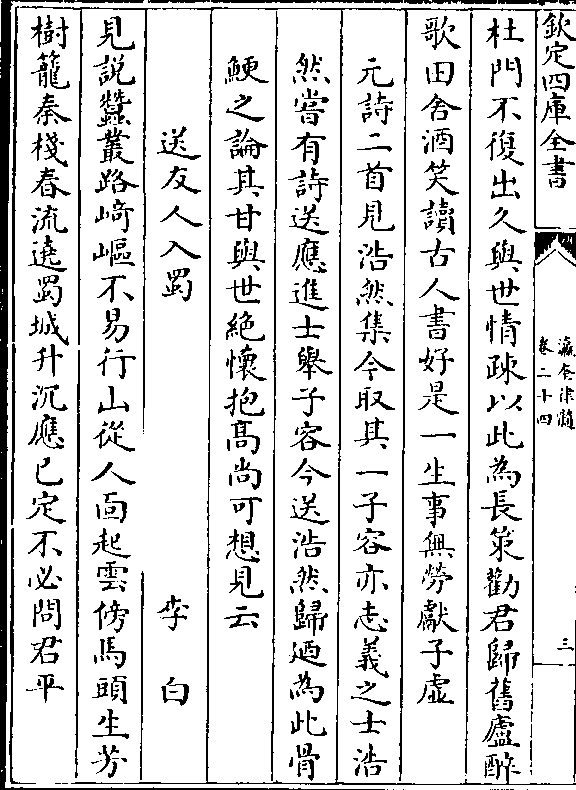 欽定四庫全書
瀛奎律髓
卷二十四
三
杜門不復出久與世情疎以此為長策勸君歸舊廬醉
歌田舍酒笑讀古人書好是一生事無勞獻子虛
元詩二首見浩然集今取其一子容亦志義之士浩
然嘗有詩送應進士舉子容今送浩然歸廼為此骨
鯁之論其甘與世絕懷抱高尚可想見云
送友人入蜀　李白
見說蠶叢路﨑嶇不易行山從人面起雲傍馬頭生芳
樹籠秦棧春流遶蜀城升沉應已定不必問君平